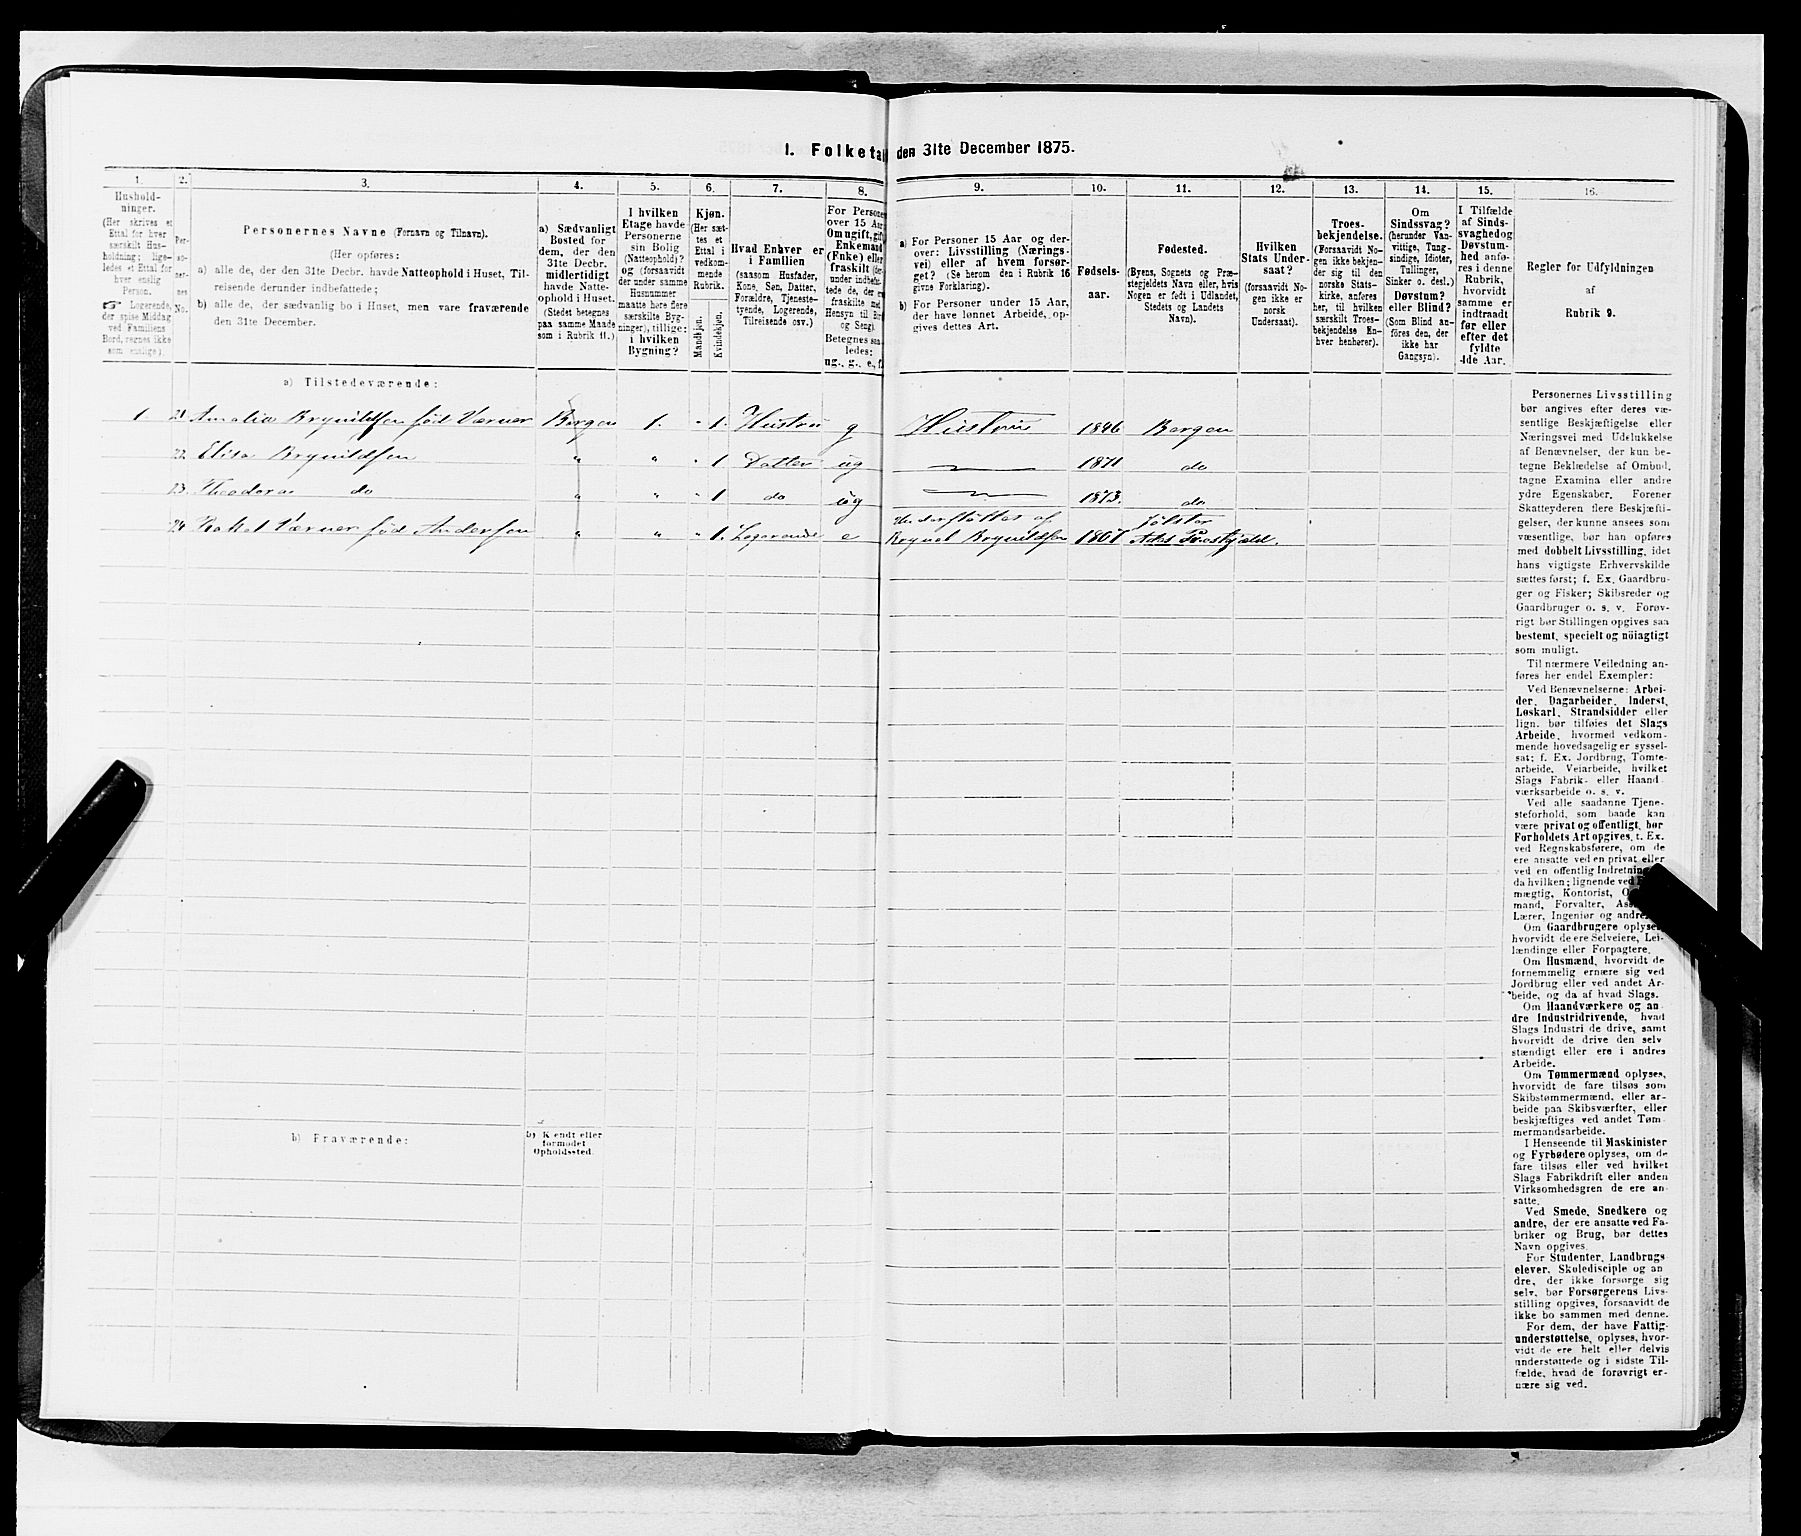 I. Folketal den 31te December 1875.
1.
Hushold-
ninger.
(Her skrives et
Ettal for hver
særskilt Hus-
holdning; lige-
ledes et Ettal for
hver enslig
Person.
☞ Logerende,
der spise Middag
ved Familiens
Bord, regnes ikke
som enslige).
2.
Per-
so-
ner-
nes
No.
3.
Personernes Navne (Fornavn og Tilnavn).
(Her opføres:
a) alle de, der den 31te Decbr. havde Natteophold i Huset, Til-
reisende derunder indbefattede;
b) alle de, der sædvanlig bo i Huset, men vare fraværende
den 31te December.
4.
a) Sædvanligt
Bosted for
dem, der den
31te Decbr.
midlertidigt
havde Natte-
ophold i Huset.
(Stedet betegnes
paa samme Maade
som i Rubrik 11.)
5.
I hvilken
Etage havde
Personerne
sin Bolig
(Natteophold)?
og (forsaavidt
der under samme
Husnummer
maatte høre flere
særskilte Byg-
ninger), tillige:
i hvilken
Bygning?
6.
Kjøn.
(Her sæt-
tes et
Ettal i
vedkom-
mende
Rubrik.
Mandkjøn.
Kvindekjøn.
7.
Hvad Enhver er
i Familien
(saasom Husfader,
Kone, Søn, Datter,
Forældre, Tjeneste-
tyende, Logerende,
Tilreisende osv.)
8.
For Persone
over 15 Aar
Om ugift, gif
Enkemand
(Enke) eller
fraskilt (der
under indbefat-
tede de, der er
fraskilte med
Hensyn til Bor
og Seng).
Betegnes saa
ledes:
ug., g., e., f.
9.
a) For Personer 15 Aar og der-
over: Livsstilling (Nærings-
vei) eller af hvem forsør-
get? (Se herom den i Rubrik 16
givne Forklaring).
b) For Personer under 15 Aar,
der have lønnet Arbeide, op-
gives dettes Art.
10.
Fødsels-
aar.
11.
Fødested.
(Byens, Sognets og Præ-
stegjeldets Navn eller, hvis
Nogen er født i Udlandet,
Stedets og Landets
Navn).
12.
Hvilken
Stats Under-
saat?
(forsaavidt No-
gen ikke er
norsk
Undersaat).
13.
Troes-
bekjendelse.
(Forsaavidt No-
gen ikke bekjen-
der sig til den
norske Stats-
kirke, anføres
her, til hvilken
særskilt Troes-
bekjendelse En-
hver henhører).
14.
Om
Sindssvag?
(herunder Van-
vittige, Tung-
sindige, Idioter,
Tullinger,
Sinker o. desl.)
Døvstum?
eller Blind?
(Som Blind an-
føres den, der
ikke har
Gangsyn).
15.
I Tilfælde
af Sinds-
svaghed og
Døvstum-
hed anfø-
res i denne
Rubrik,
hvorvidt
samme er
indtraadt
før eller
efter det
fyldte
4de Aar.
16.
Regler for Udfyldningen
af
Rubrik 9.
a) Tilstedeværende:
1. 21. Amalia Brynildsen född Værner Bergen 1. " 1. Hustru g Hustru 1846 Bergen
22. Elisa Brynildsen " " " 1 Datter ug 1871 do
23. Theodora do " " " 1 do ug 1873. do
24. Værner född Andersen " " " 1. Logerende e Understøttes af Brynel Brynildsen 1807 Jølster
b) Fraværende:
b) Kjendt eller
formodet
Opholdssted.
Personernes Livsstilling
bør angives efter deres væ-
sentlige Beskjæftigelse eller
Næringsvei med Udelukkelse
af Benævnelser, der kun be-
tegne Beklædelse af Ombud,
tagne Examina eller andre
ydre Egenskaber. Forener
Skatteyderen flere Beskjæfti-
gelser, der kunne ansees som
væsentlige, bør han opføres
med dobbelt Livsstilling, idet
hans vigtigste Erhvervskilde
sættes først; f. Ex. Gaardbru-
ger og Fisker; Skibsreder og
Gaardbruger o. s. v. Forøv-
rigt bør Stillingen opgives saa
bestemt, specielt og nöiagtigt
som muligt.
Til nærmere Veiledning an-
føres her endel Exempler:
Ved Benævnelserne: Arbei-
der, Dagarbeider, Inderst,
Løskarl, Strandsidder eller
lign. bør tilføies det Slags
Arbeide, hvormed vedkom-
mende hovedsagelig er syssel-
sat; f. Ex. Jordbrug, Tomte-
arbeide, Veiarbeide, hvilket
Slags Fabrik- eller Haand-
værksarbeide o. s. v.
Ved alle saadanne Tjene-
steforhold, som baade kan
være privat og offentligt, bør
Forholdets Art opgives, t. Ex.
ved Regnskabsførere, om de
ere ansatte ved en privat eller
ved en offentlig Indretning
da hvilken; lignende ved
mægtig, Kontorist,
mand, Forvalter,
Lærer, Ingeniør og andre.
Om Gaardbrugere oplyses,
hvorvidt de ere Selveiere, Lei-
lændinge eller Forpagtere.
Om Husmænd, hvorvidt de
fornemmelig ernære sig ved
Jordbrug eller ved andet Ar-
beide, og da af hvad Slags.
Om Haandværkere og an-
dre Industridrivende, hvad
Slags Industri de drive, samt
hvorvidt de drive den selv-
stændigt eller ere i andres
Arbeide.
Om Tømmermænd oplyses,
hvorvidt de fare tilsøs som
Skibstømmermænd, eller ar-
beide paa Skibsværfter, eller
beskjæftiges ved andet Tøm-
mermandsarbeide.
I Henseende til Maskinister
og Fyrbødere oplyses, om de
fare tilsøs eller ved hvilket
Slags Fabrikdrift eller anden
Virksomhedsgren de ere an-
satte.
Ved Smede, Snedkere og
andre, der ere ansatte ved Fa-
briker og Brug, bør dettes
Navn opgives.
For Studenter, Landbrugs-
elever, Skoledisciple og an-
dre, der ikke forsørge sig
selv, bør Forsørgerens Livs-
stilling opgives, forsaavidt de
ikke bo sammen med denne.
For dem, der have Fattig-
understøttelse, oplyses, hvor-
vidt de ere helt eller delvis
understøttede og i sidste Til-
fælde, hvad de forøvrigt er-
nære sig ved.